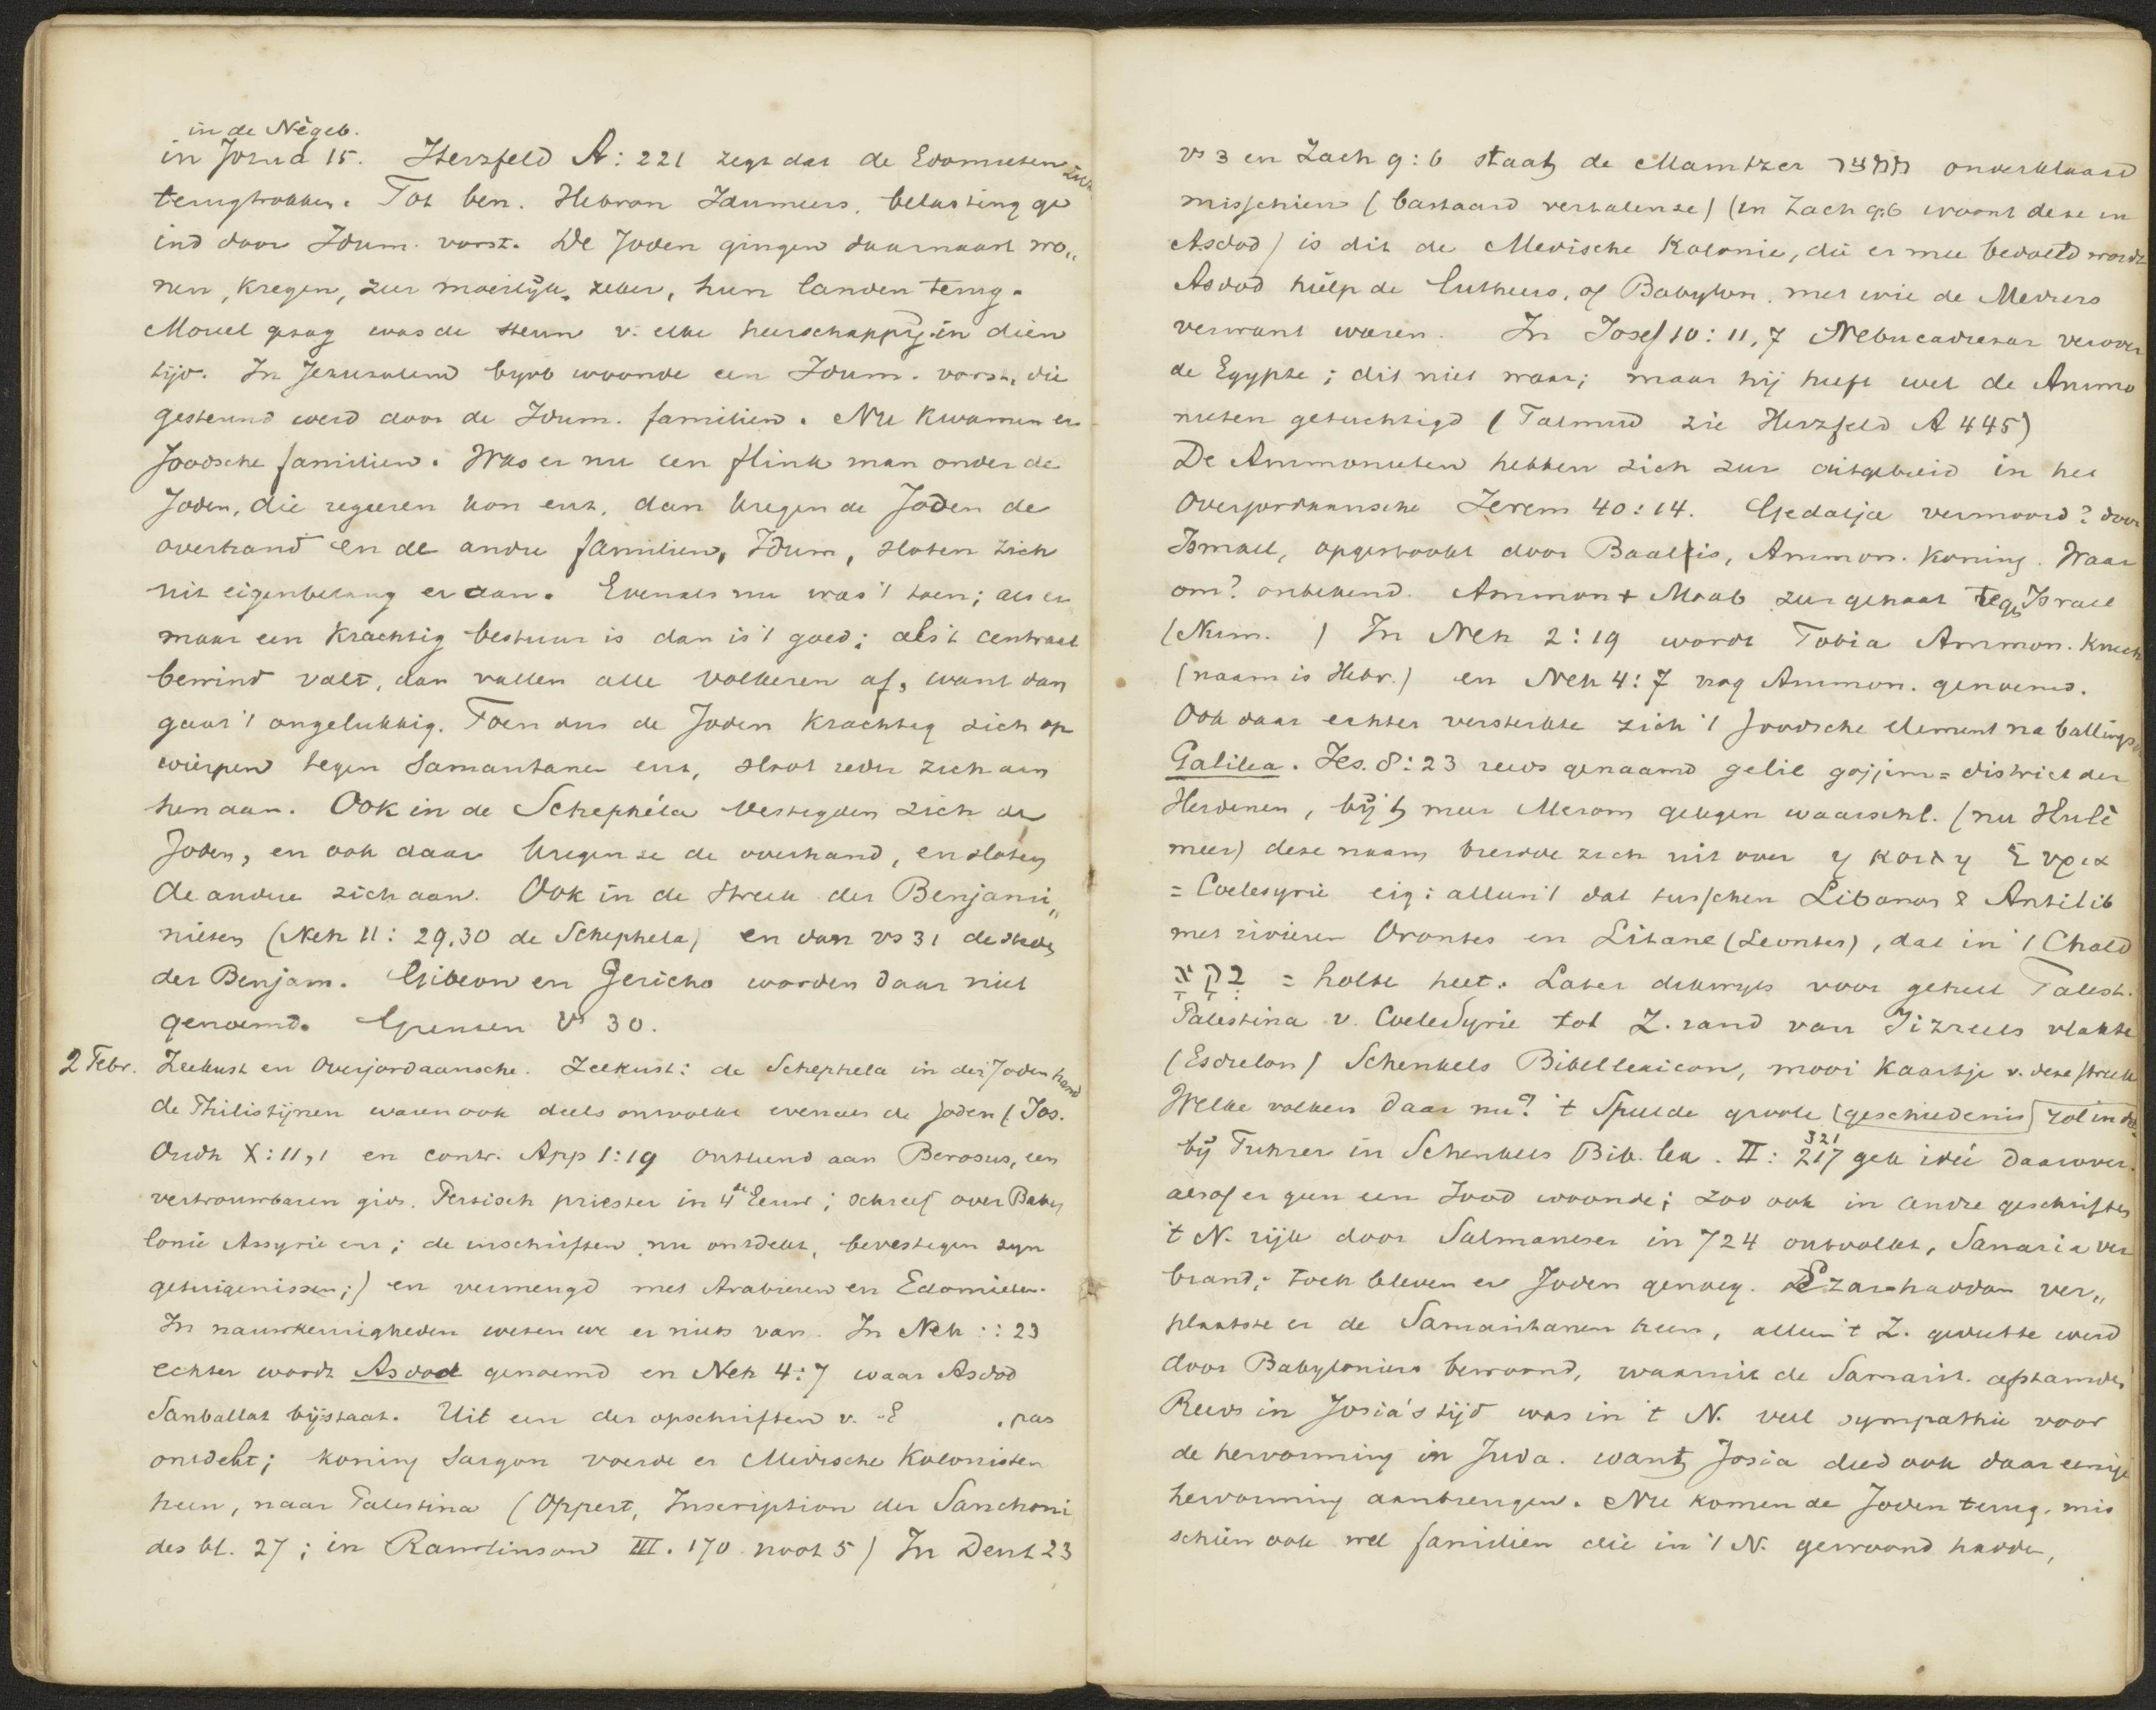 in de Négeb.
in Jozua 15. Herzfeld A: 221 zegt dat de Edomieten zich
terugtrokken. Tot ben. Hebron Idumeers, belasting ge
ind door Idum. vorst. De Joden gingen daarnaast wo„
nen, kregen, zeer moeilijk, zeker, hun landen terug.
Moreel gezag was de steun v. elke heerschappij in dien
tijd. In Jeruzalem bijvb woonde een Idum. vorst, die
gesteund werd door de Idum. familien. Nu kwamen er
Joodsche familien. Was er nu een flink man onder de
Joden, die regeeren kon enz, dan kregen de Joden de
overhand en de andre familien, Idum, sloten zich
uit eigenbelang er aan. Evenals nu was 't toen; als er
maar een krachtig bestuur is dan is 't goed; als 't centraal
bewind valt, dan vallen alle volkeren af, want dan
gaat 't ongelukkig. Toen dus de Joden krachtig zich op
wierpen tegen Samaritanen enz, sloot ieder zich aan
hen aan. Ook in de Schephéla vestigden zich de
Joden, en ook daar kregen ze de overhand, en sloten
de andere zich aan. Ook in de streek der Benjami„
nieten (Neh 11: 29,30 de Schephela) en dan vs 31 de steden
der Benjam. Gibeon en Jericho worden daar niet
genoemd. Grenzen Vs 30.
2 Febr. Zeekust en Overjordaansche. Zeekust: de Schephela in der Joden hand
de Philistijnen waren ook deels ontvolkt evenals de Joden (Jos.
Oudh X: 11,1 en contr. App 1:19 ontleend aan Berosus, een
vertrouwbaren gids. Persisch priester in 4de Eeuw; schreef over Baby
lonie Assyrie enz; de inschriften nu ontdekt, bevestigen zijn
getuigenissen;) en vermengd met Arabieren en Edomieten.
In nauwkeurigheden weten we er niets van. In Neh : : 23
echter wordt Asdod genoemd en Neh 4:7 waar Asdod
Sanballat bijstaat. Uit een der opschriften v. E , pas
ontdekt; koning Sargon voerde er Medische Kolonisten
heen, naar Palestina (Oppert, Inscription der Sanchoni
des bl. 27; in Rawlinson III. 170 noot 5) In Deut 23
vs 3 en Zach 9:6 staat de Mamtzer ממצר onverklaard
misschien (bastaard vertalen ze) (in Zach 9:6 woont deze in
Asdod) is dit de Medische Kolonie, die er mee bedoeld wordt
Asdod hielp de Cutheers, of Babylon, met wie de Mediers
verwant waren. In Josef 10: 11,7 Nebucadrezar verover
de Egypte; dit niet waar; maar hij heeft wel de Ammo
nieten getuchtigd (Talmud zie Herzfeld A 445)
De Ammonieten hebben zich zeer uitgebreid in het
Overjordaansche Jerem 40:14. Gedalja vermoord? door
Ismael, opgestookt door Baalis, Ammon. koning. Waar
om? onbekend. Ammon + Moab zeer gehaat tegen Israel
(Num. ) In Neh 2:19 wordt Tobia Ammon. Knecht
(naam is Hebr.) en Neh 4:7 nog Ammon. genoemd.
Ook daar echter versterkte zich 't Joodsche element na ballings
Galilea. Jes. 8:23 reeds genaamd gelil gojjim = district der
Heidenen, bij 't meer Merom gelegen waarschl. (nu Hulè
meer) deze naam breidde zich uit over ἡ κοιλη Συρια
= Coelesyrie eig: alleen 't dal tusschen Libanos & Antilib
met rivieren Orontes en Litane (Leontes), dat in 't Chald
בִּקְעָא = holte heet. Later dikwijls voor geheel Palest.
Palestina v. Coelesyrie tot Z. rand van Jizreels vlakte
(Esdrelon) Schenkels Bibellexicon, mooi kaartje v. deze streek
Welke volken daar nu? 't Speelde groote (geschiedenis) rol in de
bij Furrer in Schenkels Bib. lex. II: 321 217 geen idée daarover.
alsof er geen een Jood woonde; zoo ook in andre geschriften
't N. rijk door Salmaneser in 724 ontvolkt, Samaria ver
brand; toch bleven er Joden genoeg. Ezarhaddon ver„
plaatste er de Samaritanen heen, alleen 't Z. gedeelte werd
door Babyloniers bewoond, waaruit de Samarit. afstamden
Reeds in Josia's tijd was in 't N. veel sympathie voor
de hervorming in Juda. want Josia deed ook daar eenige
hervorming aanbrengen. Nu komen de Joden terug, mis
schien ook wel familien die in 't N. gewoond hadden,